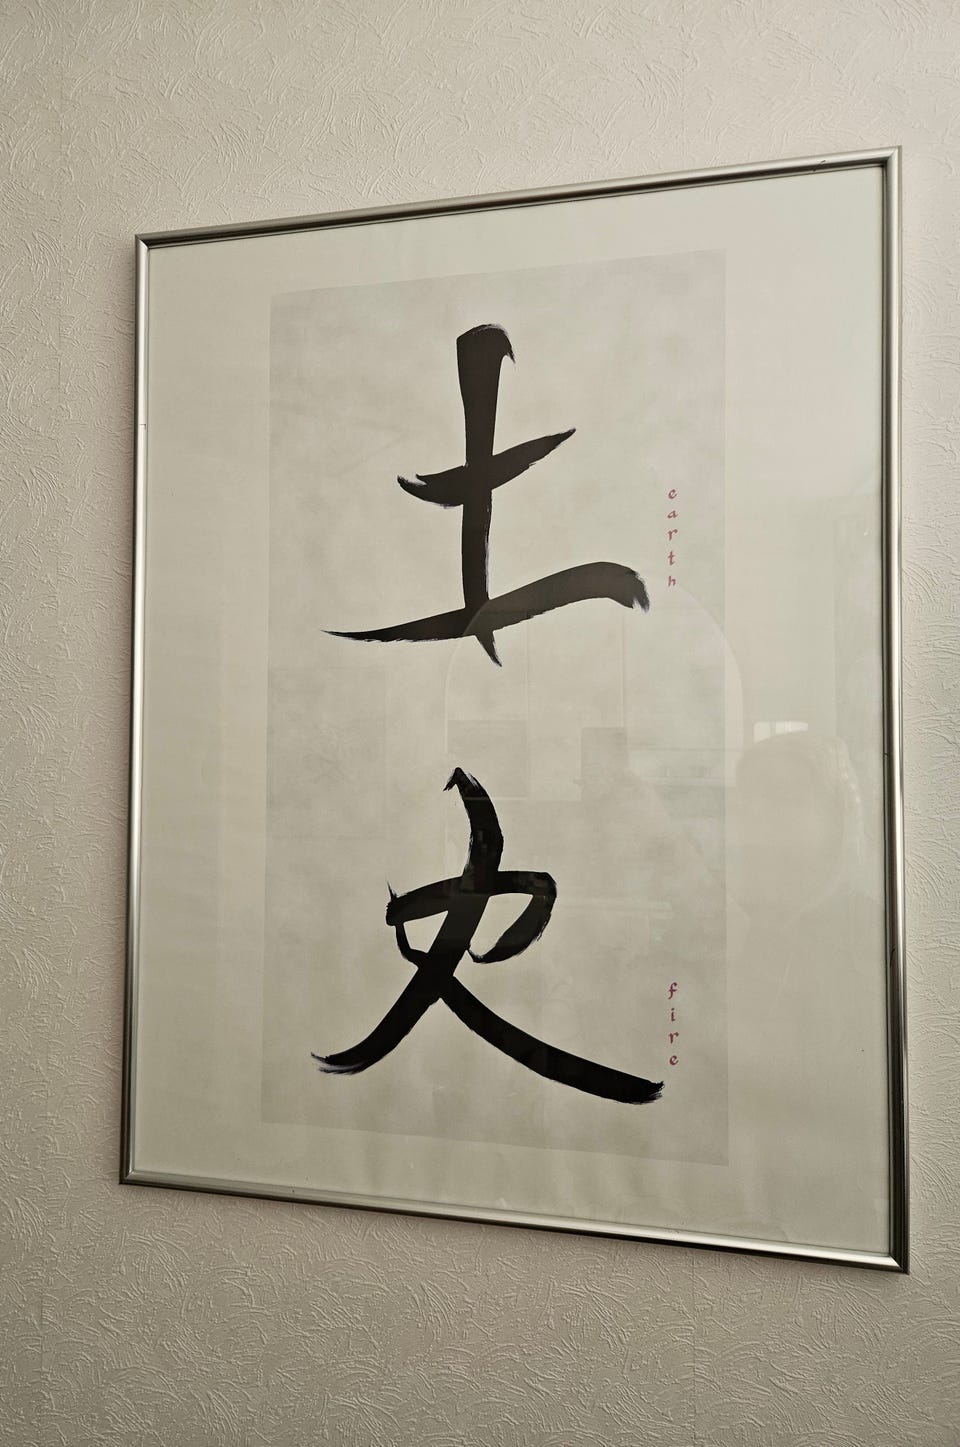 土
earth
史
fire